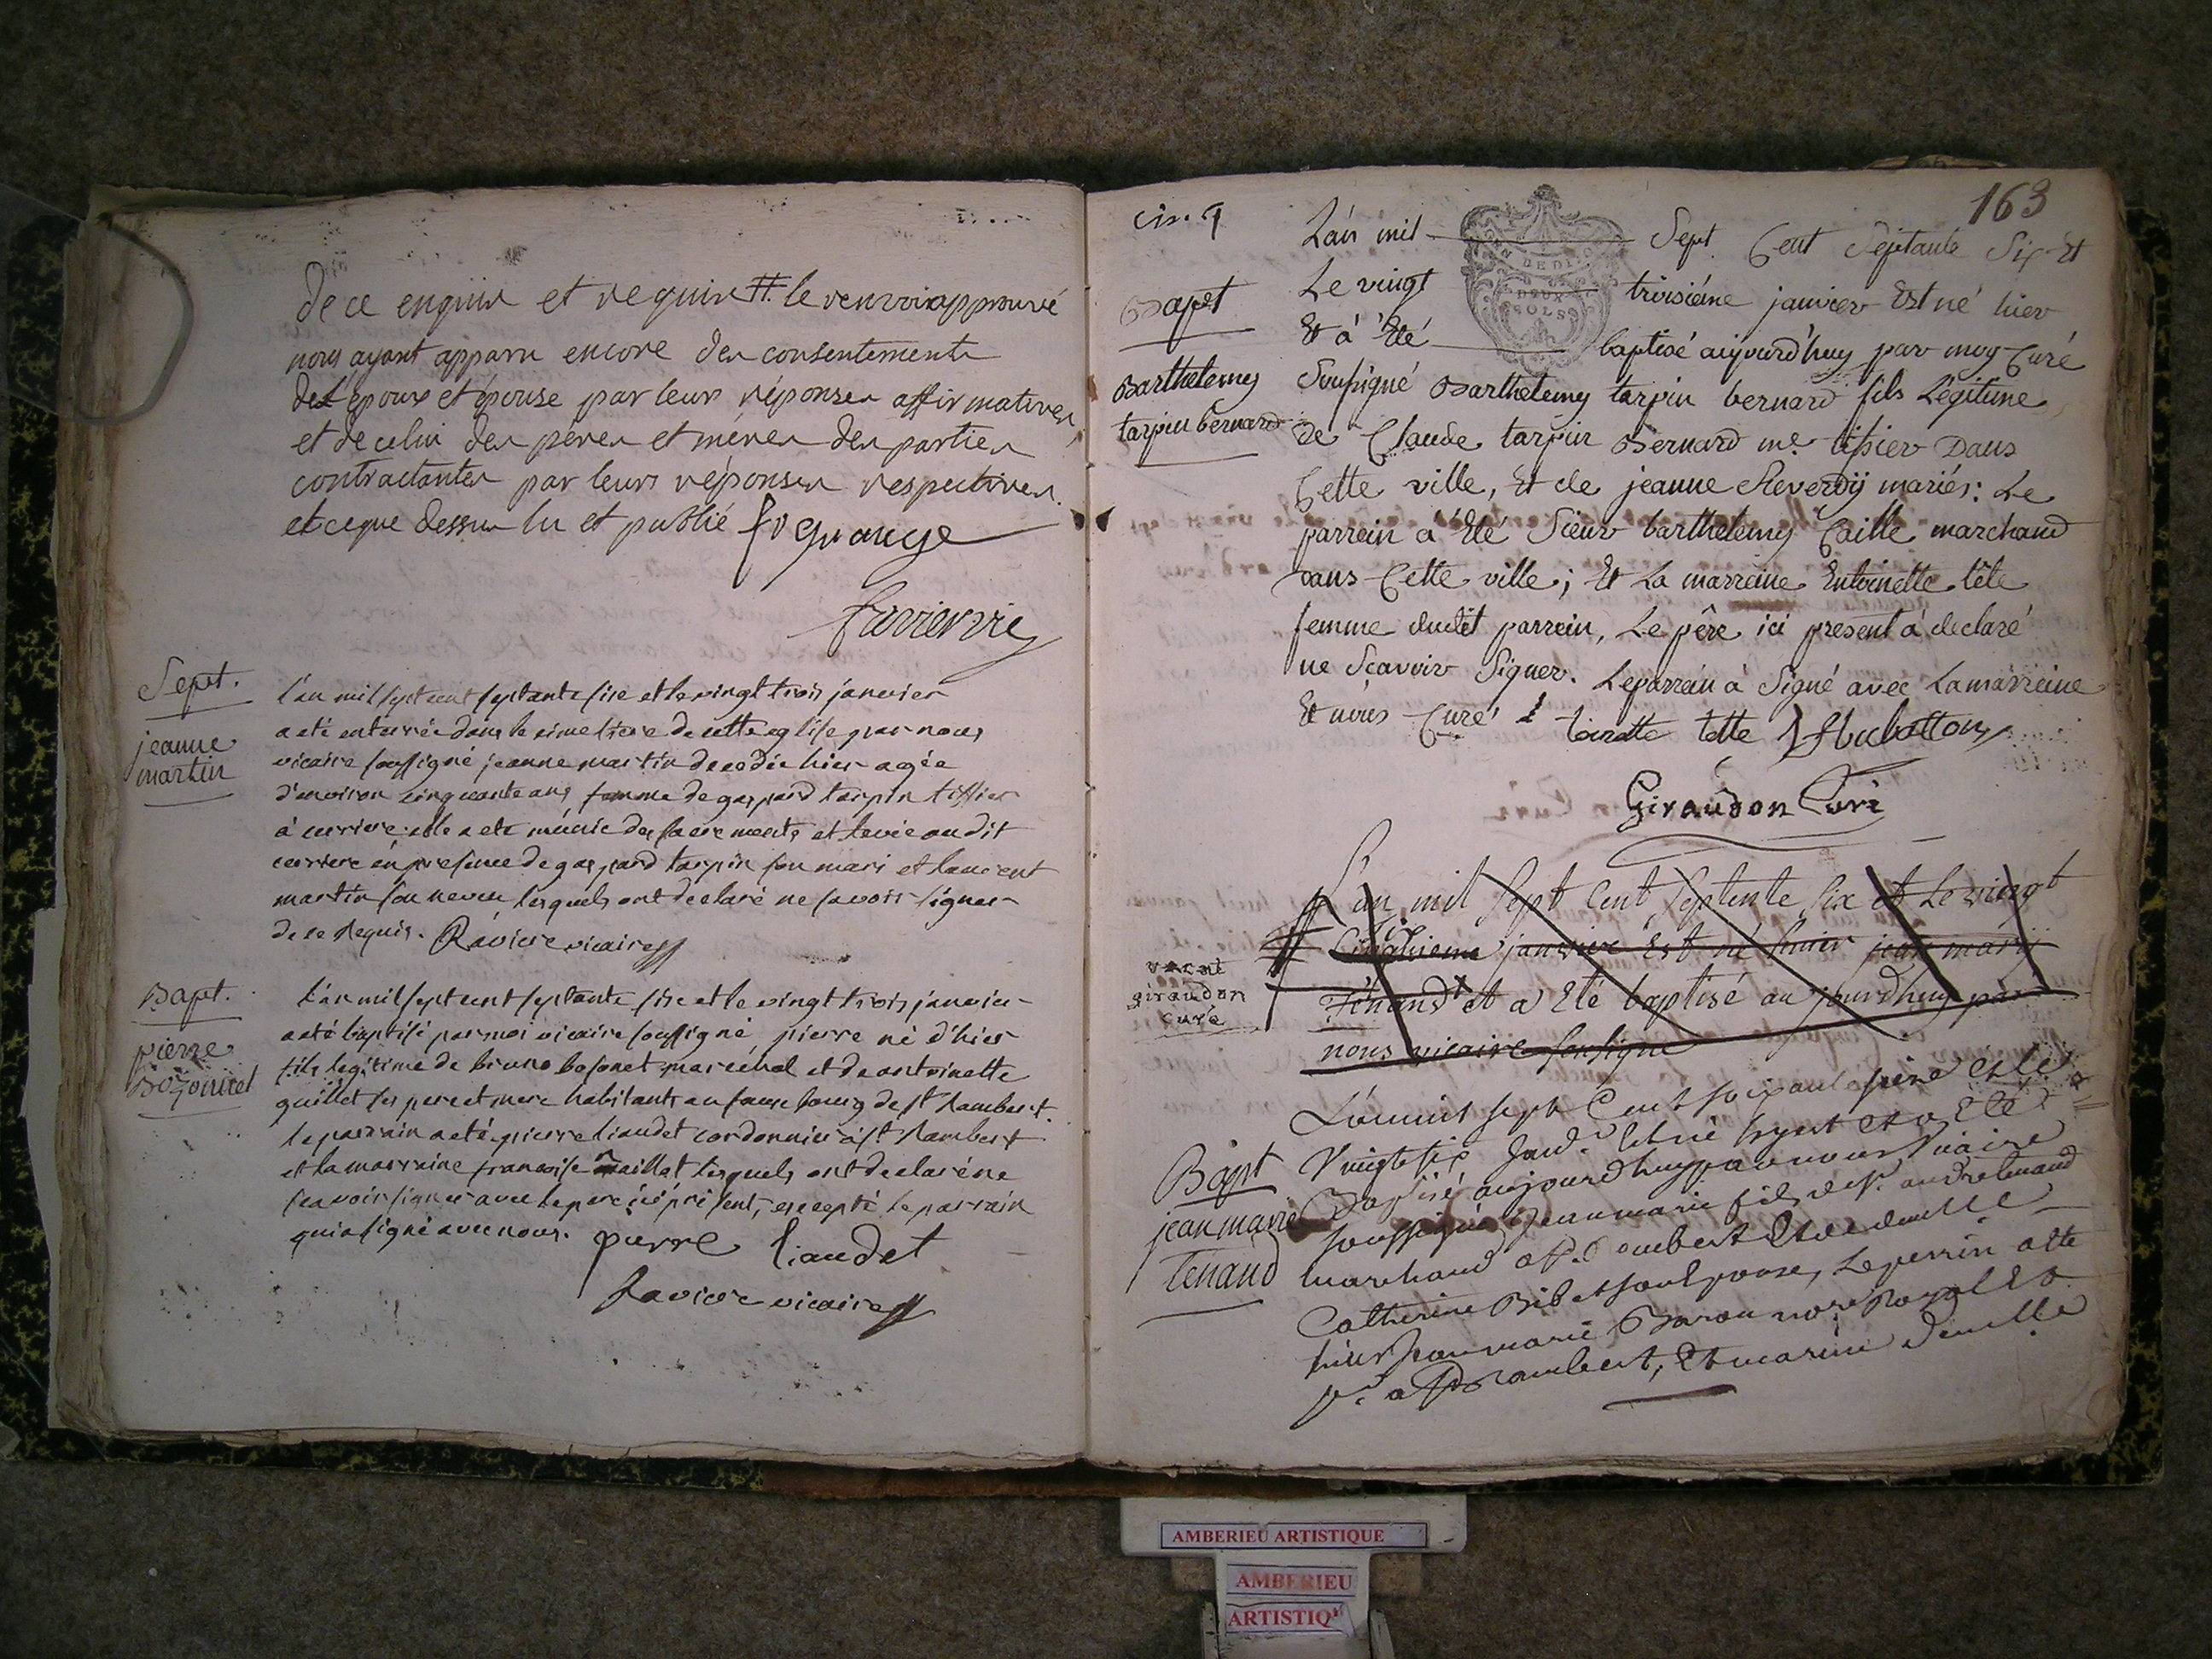 de ce enquis et requis # le renvoi approuvé
nous ayant apparu encore des consentements
de l'époux et épouse par leurs réponses affirmatives
et de celui des pères et mères des parties
contractantes par leurs réponses respectives.
et ce que dessus lu et publié
Sept.
jeanne
martin
l'an mil sept cent septante sixe et le vingt trois janvier
a eté enterrée dans le cimetiere de cette eglise par nous
vicaire soussigné jeanne martin decedée hier agée
d'environ cinquante ans femme de gaspard tarpin tissier
à elle a eté munie des sacrements et levée au dit
en presence de gaspard tarpin son mari et laurent
martin son neveu lesquels ont declaré ne savoir signer
de ce Requis. Ravier vicaire
Bapt.
pierre
Bozonnet
l'an mil sept cent septante sixe et le vingt trois janvier
a eté baptisé par moi vicaire soussigné pierre né d'hier
fils legitime de bruno bosonet marechal et de antoinette
guillet ses pere et mere habitants au fauxbourg de st Rambert.
le parrain a eté pierre liaudet cordonnier à st Rambert
et la marraine francoise maillat lesquels ont declaré ne
scavoir signer avec le pere ici présent, excepté le parrain
qui a signé avec nous. pierre liaudet
Ravier vicaire
163
L'an mil Sept Cent Septante Six Et
Bapt
Barthelemy
tarpin bernard
Le vingt troisiéme janvier Est né hier
Et à Eté baptisé aujourd'huy par moy Curé
Soussigné Barthelemy tarpin bernard fils Légitime
de Claude tarpin Bernard me. tissier Dans
Cette ville, Et de jeanne Reverdy mariés: Le
parrein a Eté Sieur barthelemy Caille marchand
Dans Cette ville; Et La marreine Entoinette tête
femme dudit parrein, Le pêre ici present à declaré
ne Scavoir Signer. Le parrein à Signé avec La marreine
Et nous Curé toinette tette
Giraudon Curé
L'an mil Sept Cent Septente Six et Le vingt
janvier Est né hier jean marÿ
vacat
giraudon
curé
Ténand et a Eté baptisé au jourd'huy par
nous vicaire sousigne
L'an mil sept Cent soixante seize et le
Bapt
jean marie
Tenand
Vingt six Janv. Est né hyer et a Eté
Baptisé aujourdhuy par nous Vicaire
soussigné jean marie fils de sr. andré tenand
marchand a St. Rambert Et de demlle
Catherine Bibet son Epouse, Le perrin a ete
sieur Jean marie Baron nore Royal Et
pr. a St Rambert, Et marine Demlle
AMBERIEU ARTISTIQUE
AMBERIEU
ARTISTIQ